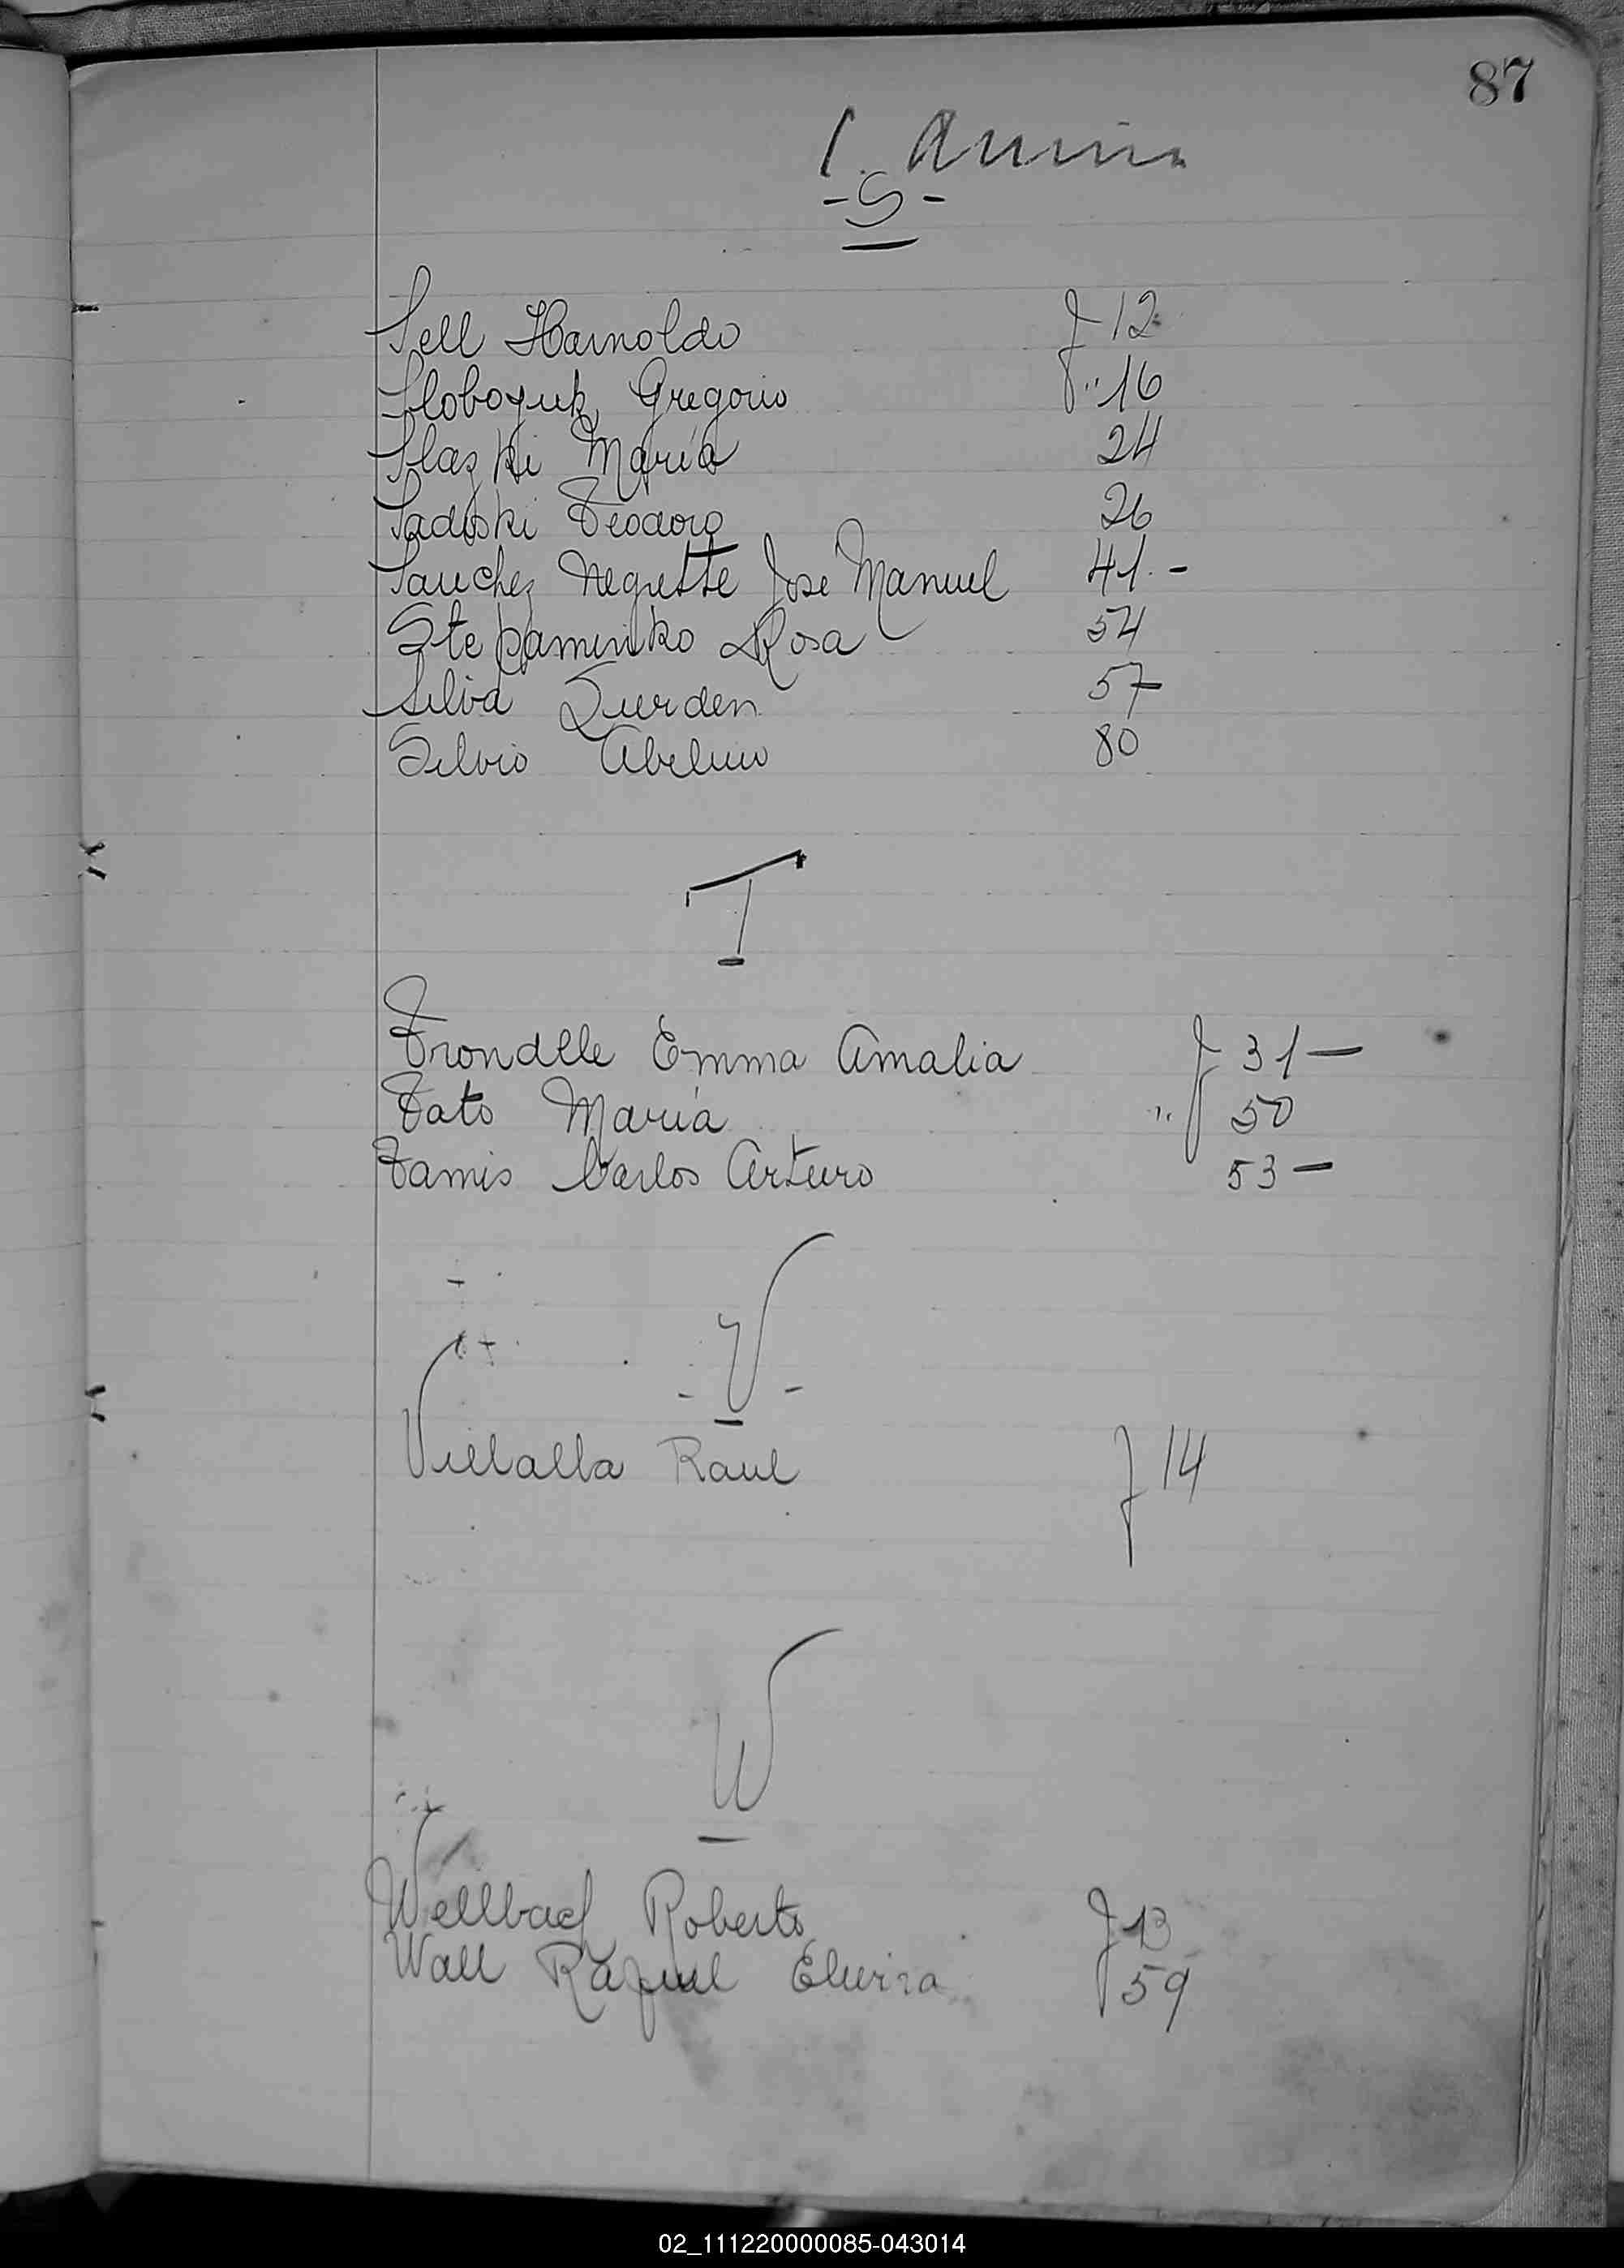 87
- S -
Sell Harnoldo f 12
Sloboyuk Gregorio " 16
Slaski Maria 24
Sadoski Teodoro 26
Sanchez Negrette Jose Manuel 41 -
Stepamenko Rosa 54
Silva 57
Silvio Abelino 80
T
Trondlle Emma Amalia f 31 -
Tato María " 50
Tamis Carlos Arturo 53 -
- V -
Villalla Raul f 14
W
Wellbach Roberto f 13
Wall Raquel Elvira 59
02_111220000085-043014